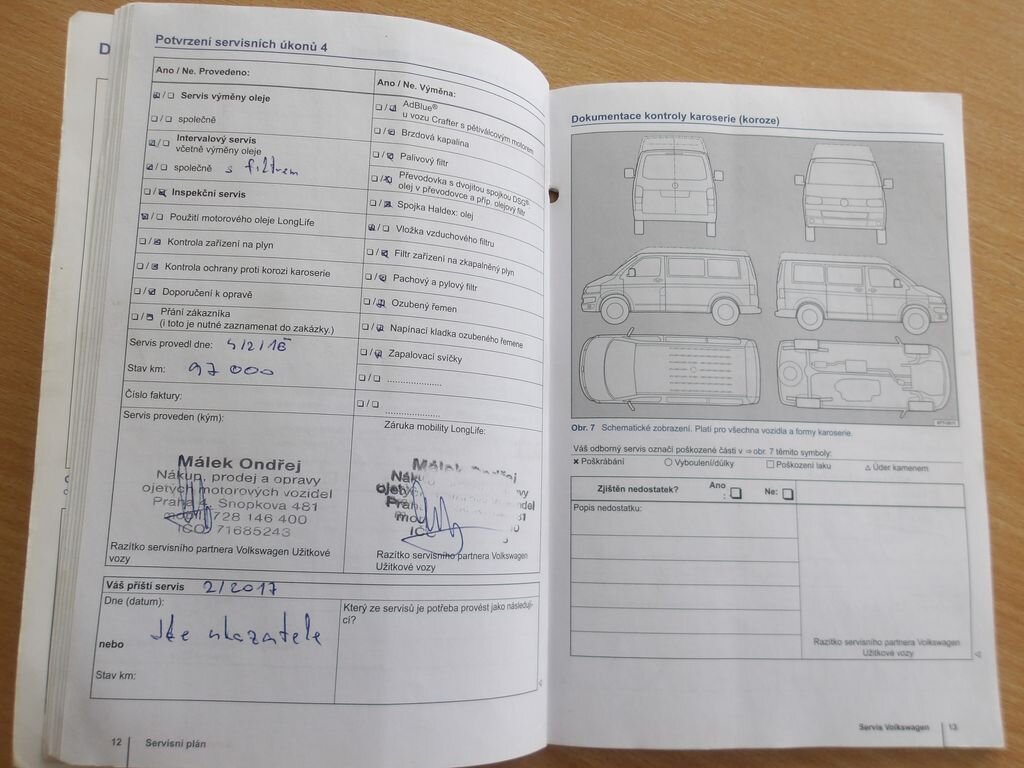 D
Potvrzení servisních úkonů 4
Ano / Ne. Provedeno:
Servis výměny oleje
společně
Intervalový servis
včetně výměny oleje
společně s filtrem
Inspekční servis
Použití motorového oleje LongLife
Kontrola zařízení na plyn
Kontrola ochrany proti korozi karoserie
Doporučení k opravě
Přání zákazníka
(i toto je nutné zaznamenat do zakázky.)
Servis provedl dne:
Stav km: 97 000
Číslo faktury:
Servis proveden (kým):
Málek Ondřej
Nákup, prodej a opravy
ojetých motorových vozidel
Praha 4, Snopkova 481
728 146 400
IČO 71685243
Razítko servisního partnera Volkswagen Užitkové
vozy
Ano / Ne. Výměna:
AdBlue®
u vozu Crafter s pětiválcovým motorem
Brzdová kapalina
Palivový filtr
Převodovka s dvojitou spojkou DSG®
olej v převodovce a příp. olejový filtr
Spojka Haldex: olej
Vložka vzduchového filtru
Filtr zařízení na zkapalněný plyn
Pachový a pylový filtr
Ozubený řemen
Napínací kladka ozubeného řemene
Zapalovací svíčky
....................
....................
Záruka mobility LongLife:
Razítko servisního partnera Volkswagen
Užitkové vozy
Váš příští servis 2/2017
Dne (datum):
Jde ukazatele
nebo
Stav km:
Který ze servisů je potřeba provést jako následují-
cí?
12 Servisní plán
Dokumentace kontroly karoserie (koroze)
Obr. 7 Schematické zobrazení. Platí pro všechna vozidla a formy karoserie.
Váš odborný servis označí poškozené části v ⇒ obr. 7 těmito symboly:
× Poškrábání ○ Vyboulení/důlky □ Poškození laku △ Úder kamenem
Zjištěn nedostatek? Ano : Ne:
Popis nedostatku:
Razítko servisního partnera Volkswagen
Užitkové vozy
Servis Volkswagen 13